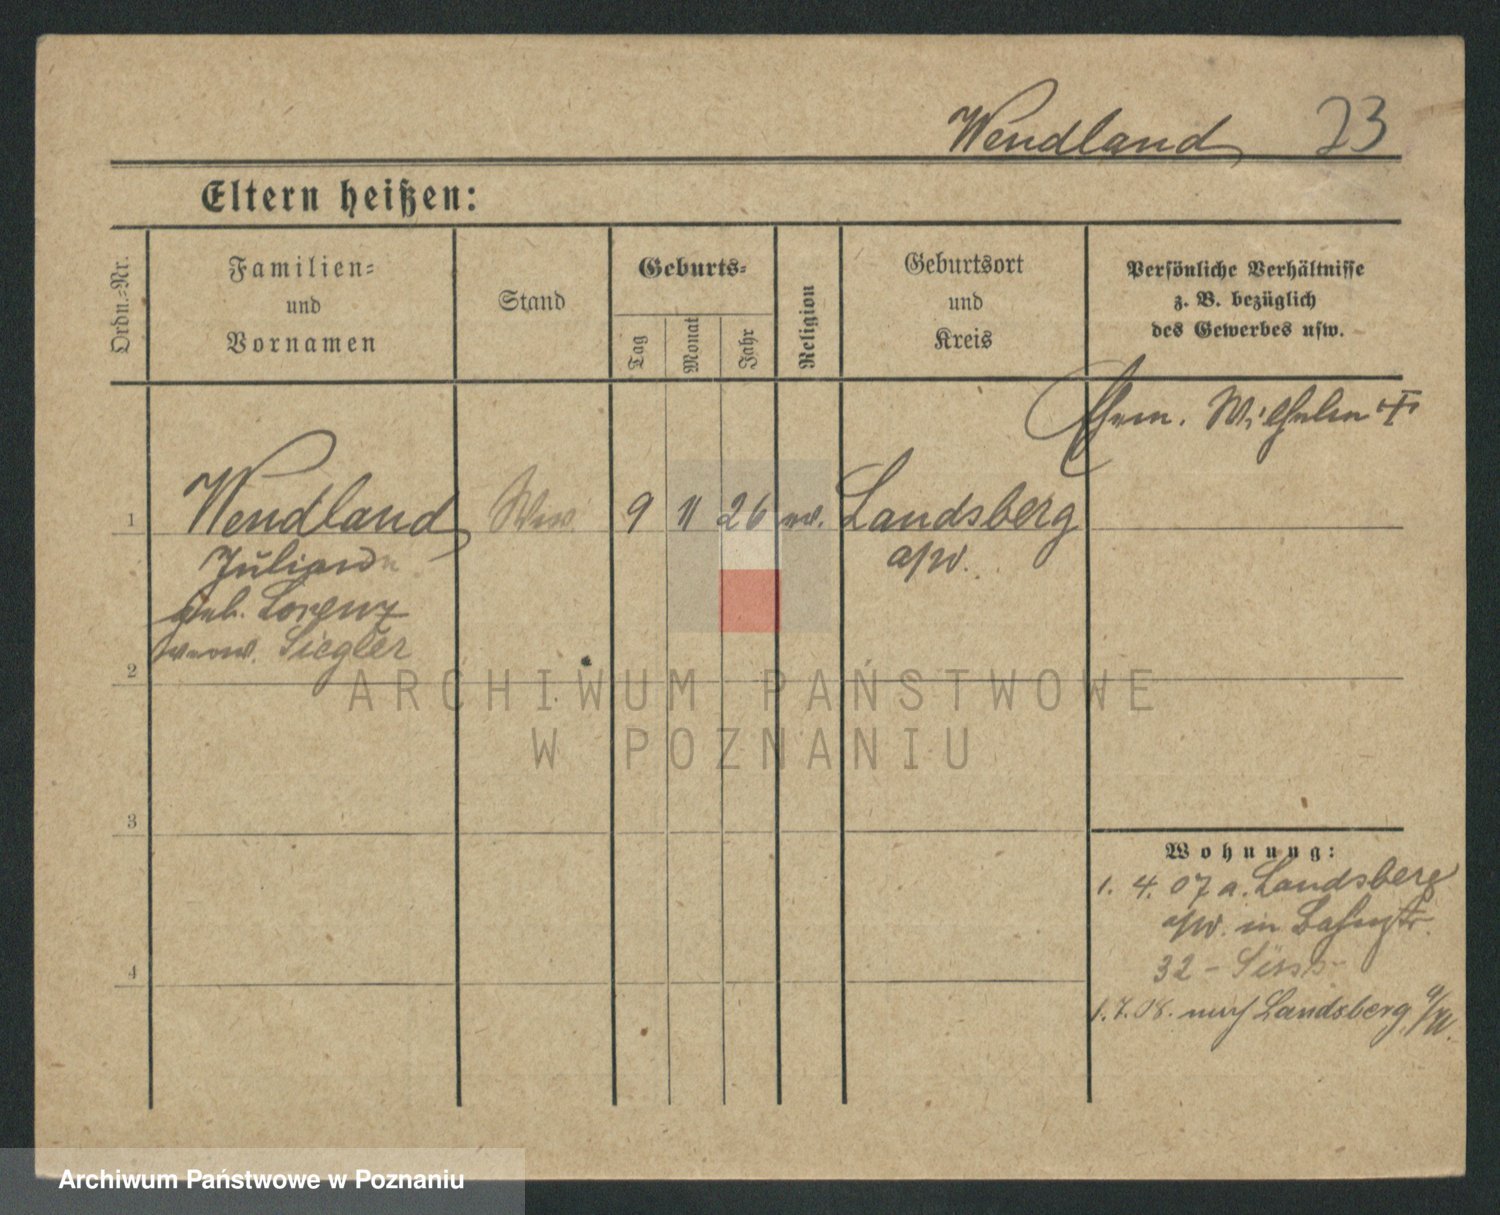 Wendland 23
Eltern heißen:
Ordn.-Nr.
Familien-
und
Vornamen
Stand
Geburts-
Tag
Monat
Jahr
Religion
Geburtsort
und
Kreis
Persönliche Verhältnisse
z. B. bezüglich
des Gewerbes usw.
Ehem. Wilhelm +
1 Wendland Ww 9 11 26 ev. Landsberg
a/W.
geb. Lorenz
verw. Siegler
2
3
4
Wohnung:
1. 4. 07 a. Landsberg
a/W. in Bahnstr.
32 –
1.7.08. nach Landsberg a/W.
ARCHIWUM PAŃSTWOWE
W POZNANIU
Archiwum Państwowe w Poznaniu